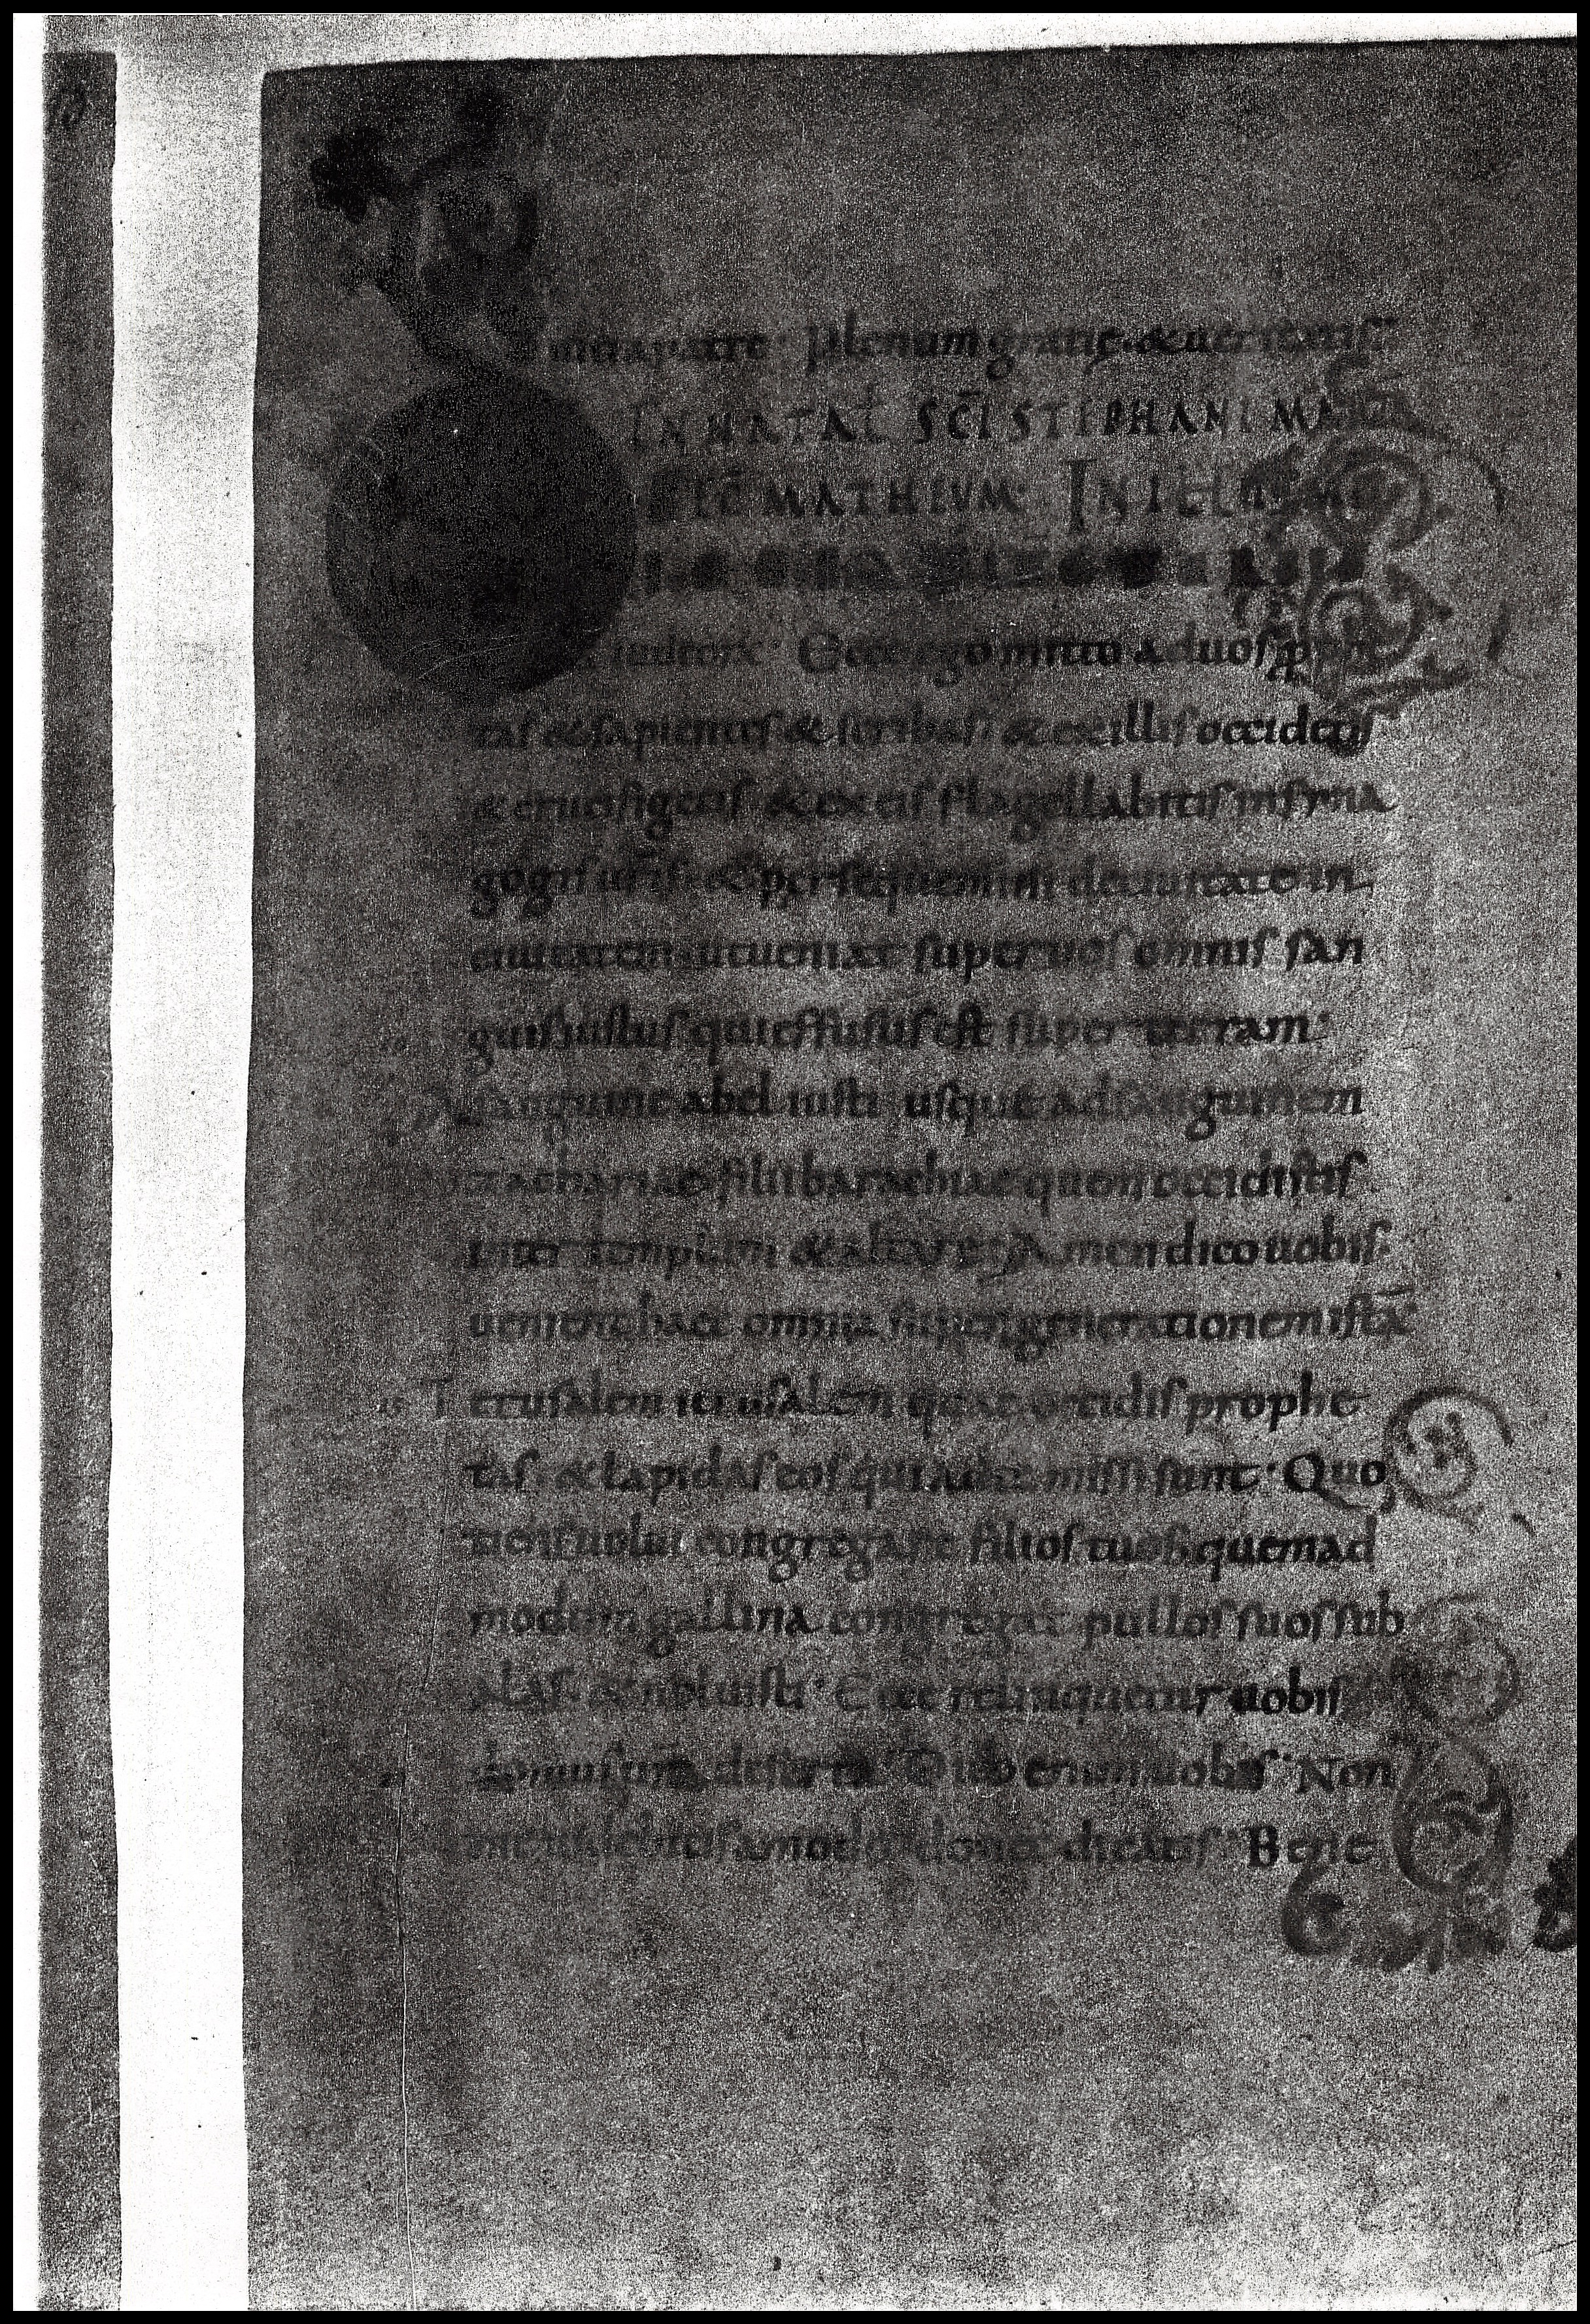 patre· plenum gratię· & ueritatis·
IN NATAL SCĪ STEPHANI MAR
SCD̄M MATHEVM· IN ILL
Ecce ego mitto aduos
tas & sapientes & scribas· & exillis occidetis
& crucifigetis· & exeis flagellabitis insyna
gogis ur̄is· & persequemini deciuitate in
ciuitatem· utueniat super uos omnis san
guis iustus qui effusus est super terram·
A sanguine abel iusti usque adsanguinem
zachariae filii barachiae quem occidistis
inter templum & altare· Amen dico uobis·
uenient haec omnia super generationem istā·
Ierusalem ierusalem quae occidis prophe
tas· & lapidas eos qui adte missi sunt· Quo
tiens uolui congregare filios tuos· quemad
modum gallina congregat pullos suos sub
alas· & noluisti· Ecce relinquetur uobis
domus ur̄a deserta· Dico enim uobis· Non
me uidebitis amodo· donec dicatis· Bene